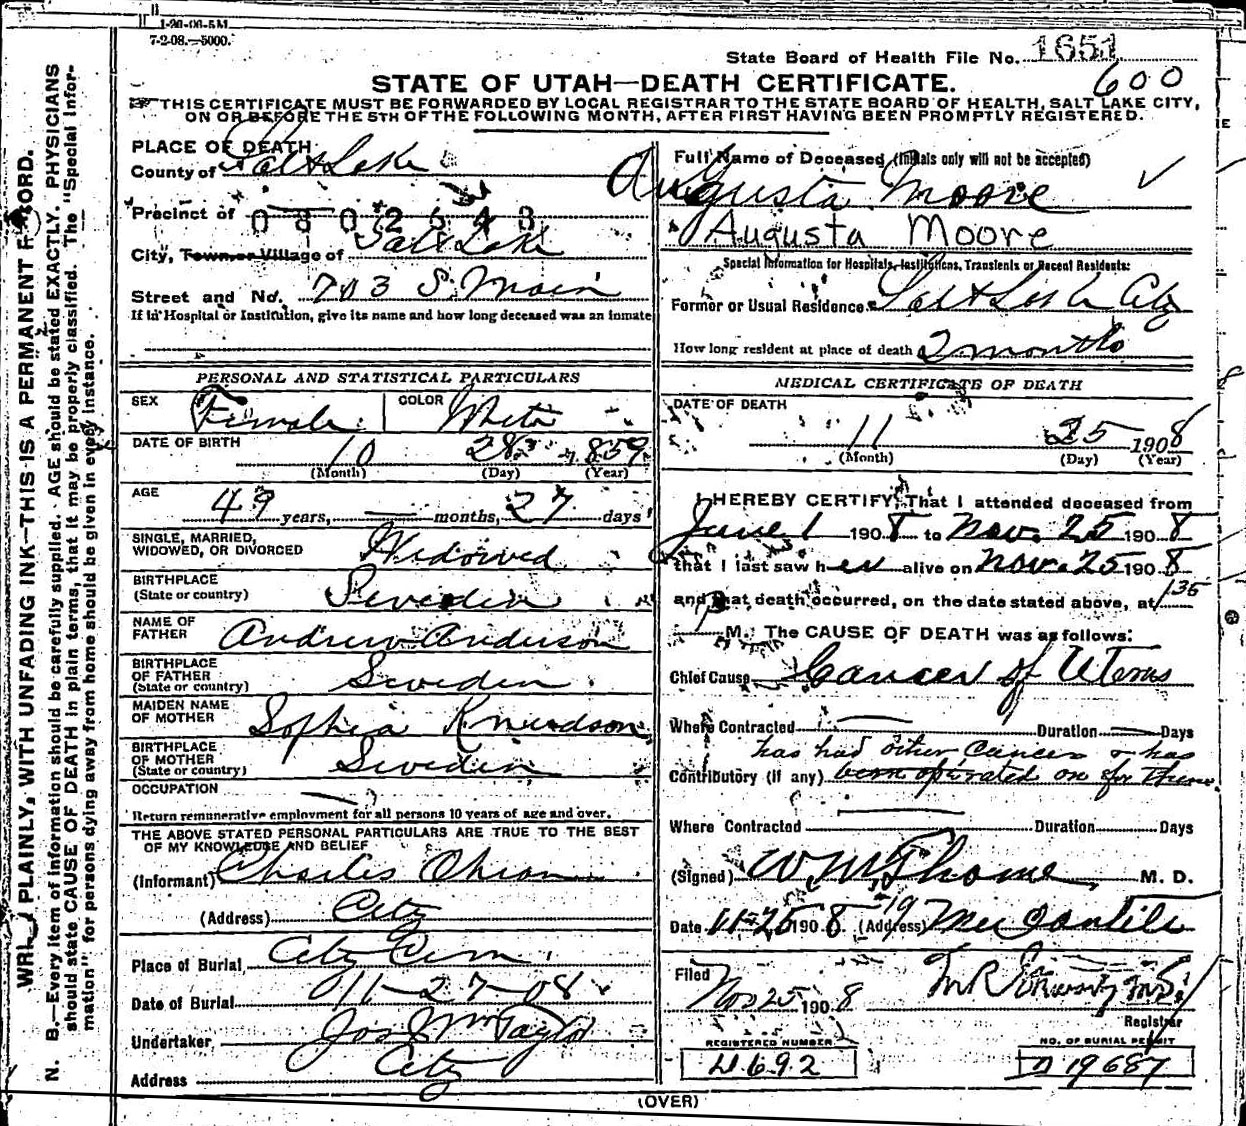 1-20-06-5M
7-2-08.—5000.
State Board of Health File No. 1651
600
STATE OF UTAH—DEATH CERTIFICATE.
THIS CERTIFICATE MUST BE FORWARDED BY LOCAL REGISTRAR TO THE STATE BOARD OF HEALTH, SALT LAKE CITY,
ON OR BEFORE THE 5TH OF THE FOLLOWING MONTH, AFTER FIRST HAVING BEEN PROMPTLY REGISTERED.
PLACE OF DEATH
County of Salt Lake
Precinct of
0802543
City, Town or Village of Salt Lake
Street and No. 703 S. Main
If in Hospital or Institution, give its name and how long deceased was an inmate
PERSONAL AND STATISTICAL PARTICULARS
SEX Female COLOR White
DATE OF BIRTH
10 28 1859
(Month) (Day) (Year)
AGE
49 years, — months, 27 days
SINGLE, MARRIED,
WIDOWED, OR DIVORCED Widowed
BIRTHPLACE
(State or country) Sweden
NAME OF
FATHER Andrew Anderson
BIRTHPLACE
OF FATHER
(State or country) Sweden
MAIDEN NAME
OF MOTHER Sophia Knudson
BIRTHPLACE
OF MOTHER
(State or country) Sweden
OCCUPATION —
Return remunerative employment for all persons 10 years of age and over.
THE ABOVE STATED PERSONAL PARTICULARS ARE TRUE TO THE BEST
OF MY KNOWLEDGE AND BELIEF
(Informant) Charles Ohran
(Address) City
Place of Burial City Cem.
Date of Burial 11-27-08
Undertaker Jos Wm Taylor
Address City
Full Name of Deceased (Initials only will not be accepted)
Augusta Moore
Augusta Moore
Special Information for Hospitals, Institutions, Transients or Recent Residents:
Former or Usual Residence Salt Lake City
How long resident at place of death 2 months
MEDICAL CERTIFICATE OF DEATH
DATE OF DEATH
11 25 1908
(Month) (Day) (Year)
I HEREBY CERTIFY, That I attended deceased from
June 1 1908 to Nov. 25 1908
that I last saw her alive on Nov. 25 1908
and that death occurred, on the date stated above, at 1 35
P M. The CAUSE OF DEATH was as follows:
Chief Cause Cancer of Uterus
Where Contracted — Duration — Days
has had other Cancers & has
Contributory (if any) been operated on for them.
Where Contracted — Duration Days
(Signed) M. D.
Date 11-25 1908 (Address) Mercantile
Filed Nov 25 1908
Registrar
REGISTERED NUMBER
NO. OF BURIAL PERMIT
4692
D 19687
(OVER)
WRITE PLAINLY, WITH UNFADING INK—THIS IS A PERMANENT RECORD.
N. B.—Every item of information should be carefully supplied. AGE should be stated EXACTLY. PHYSICIANS
should state CAUSE OF DEATH in plain terms, that it may be properly classified. The "Special Infor-
mation" for persons dying away from home should be given in every instance.